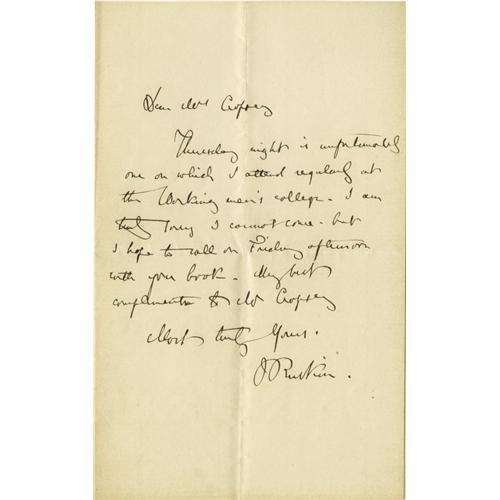 Dear Mrs Cropsey
Thursday night is unfortunately
one on which I attend regularly at
the Working men's college - I am
truly sorry I cannot come - but
I hope to call on Friday afternoon
with your book - My best
compliments to Mr Cropsey
Most truly Yours.
J Ruskin.